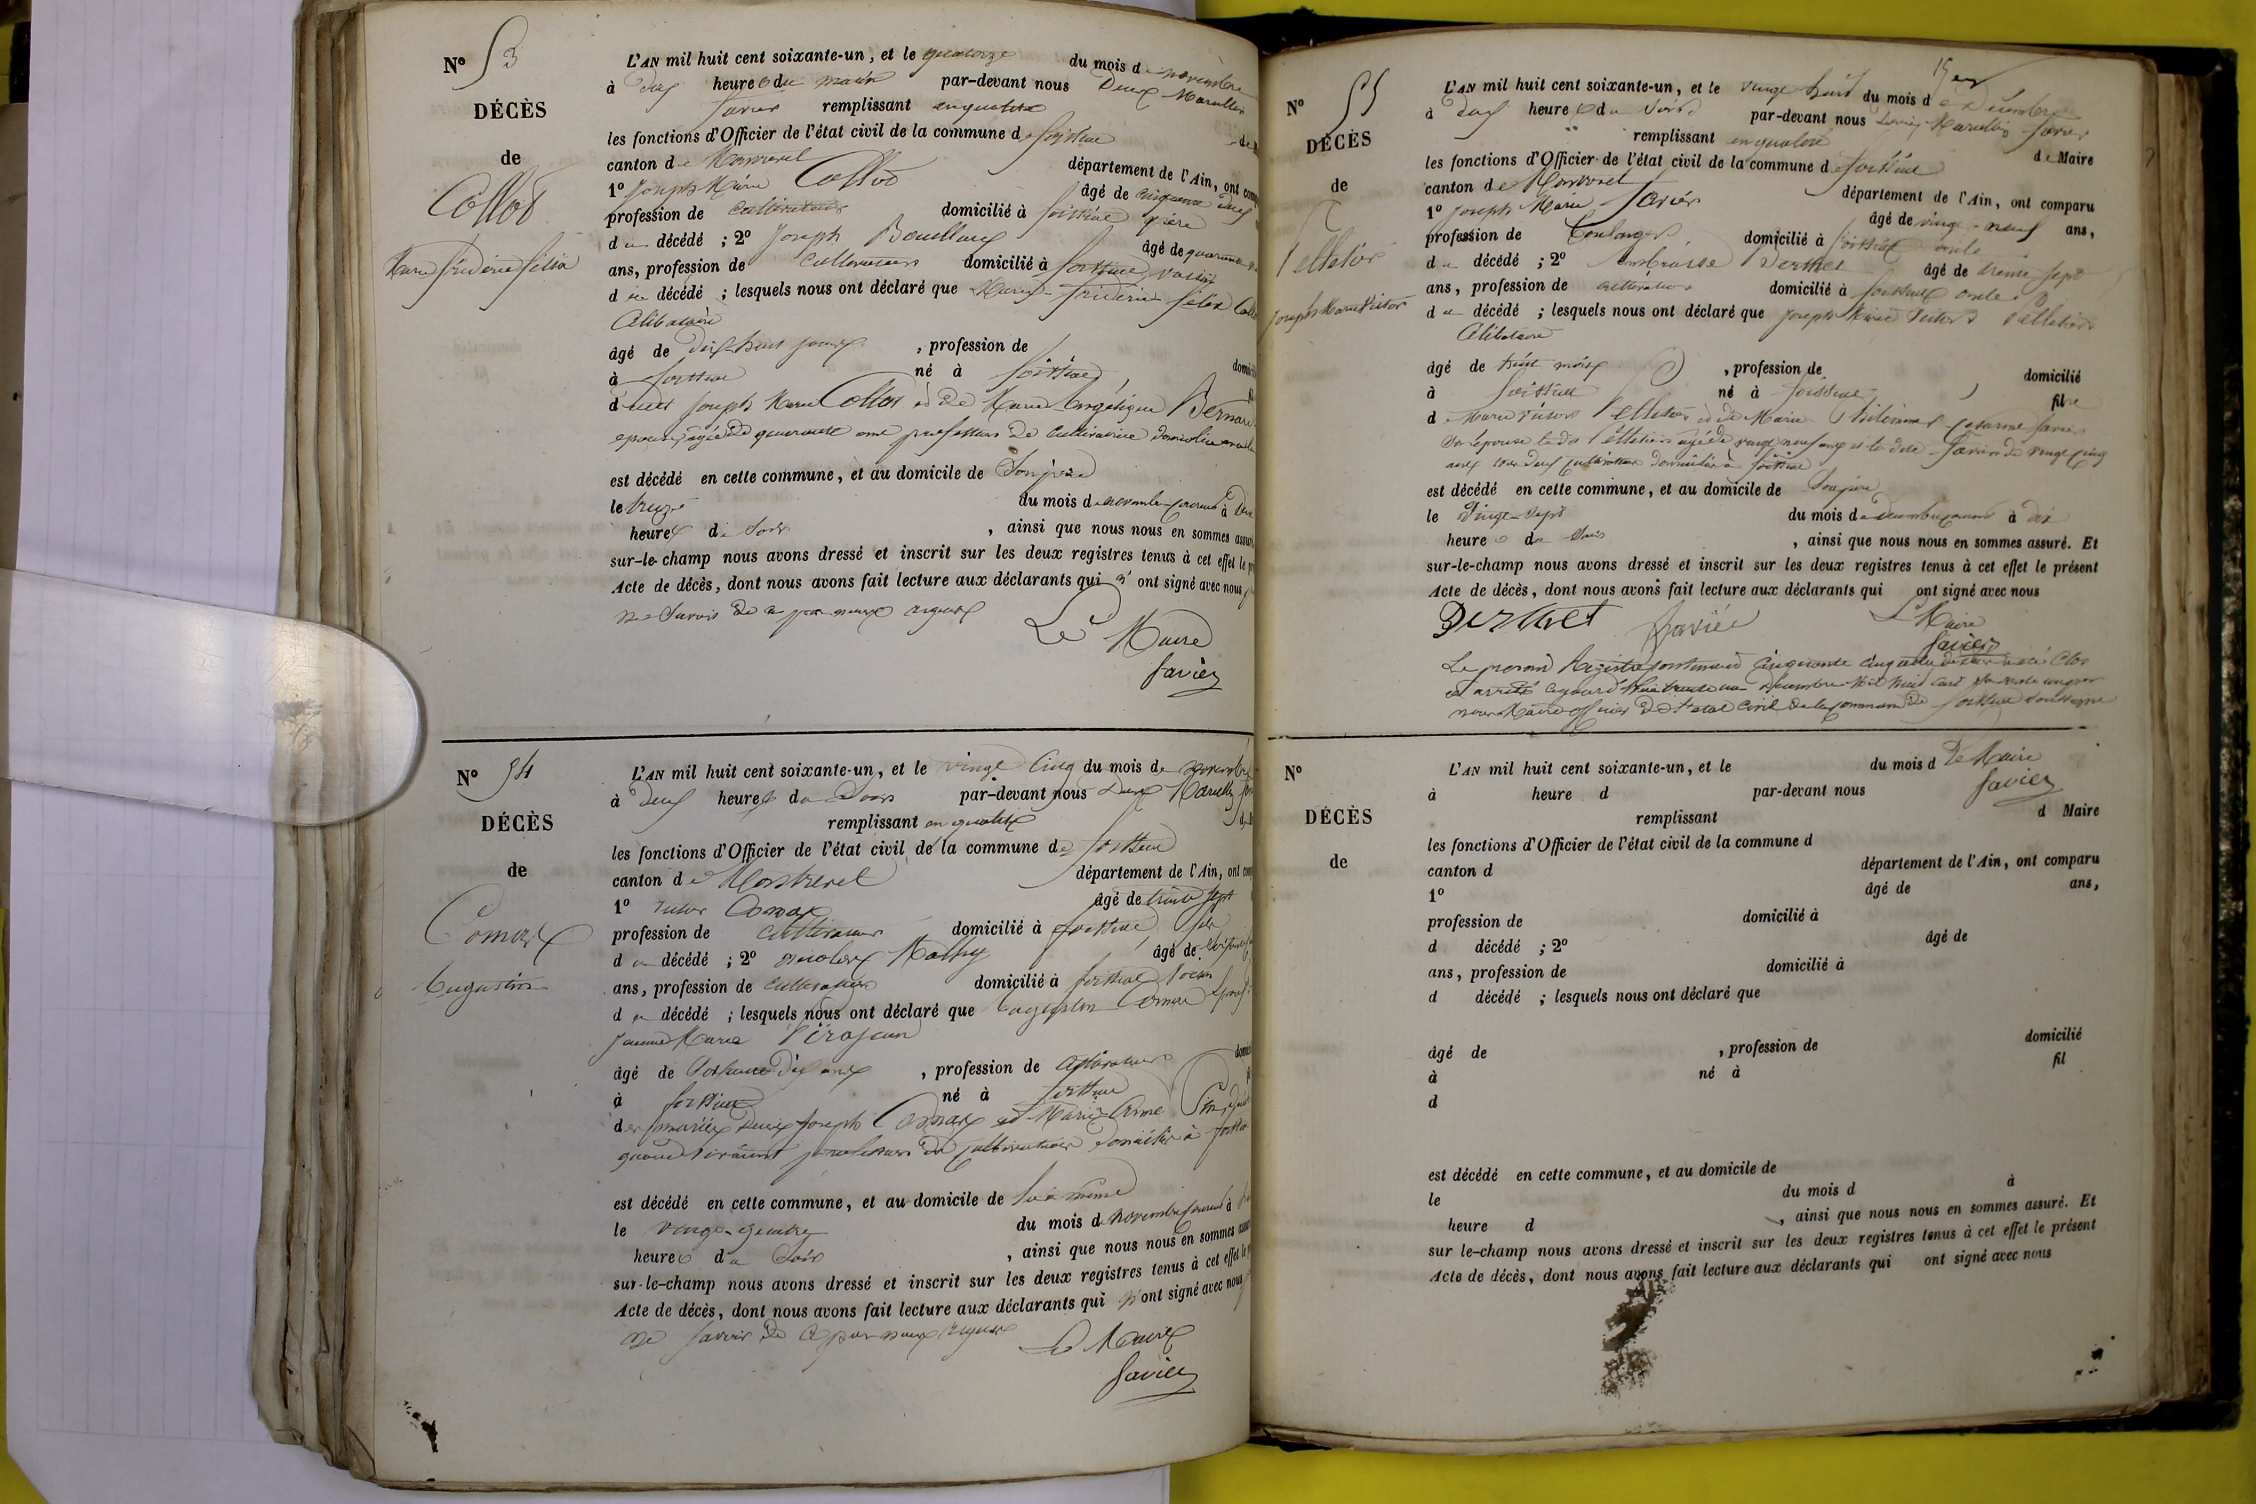 N° 53
DÉCÈS
de
Collot
Marie Frédéric Félix
L'AN mil huit cent soixante-un, et le quatorze du mois de novembre
à dix heures du matin par-devant nous Denis Marcellin
Favier remplissant en qualité
les fonctions d'Officier de l'état civil de la commune de foissiat
canton de Montrevel département de l'Ain, ont
1° Joseph Marie Collot âgé de cinquante deux
profession de cultivateur domicilié à foissiat père
du décédé ; 2° Joseph Bouilloux âgé de quarante
ans, profession de cultivateur domicilié à foissiat voisin
du décédé ; lesquels nous ont déclaré que Marie frédéric félix
Célibataire
âgé de dix-huit jours , profession de
à foissiat né à foissiat
dudit Joseph Marie Collot et de Marie Angélique Bernard
épouse, âgée de quarante ans profession de cultivatrice
est décédé en cette commune, et au domicile de Son père
le treize du mois de novembre courant à
heures du Soir , ainsi que nous nous en sommes
sur-le-champ nous avons dressé et inscrit sur les deux registres tenus à cet effet le
Acte de décès, dont nous avons fait lecture aux déclarants qui n'ont signé avec nous
ne Savoir de ce par nous requis
Le Maire
favier
N° 54
DÉCÈS
de
Comax
Augustin
L'AN mil huit cent soixante-un, et le vingt Cinq du mois de novembre
à deux heures du Soir par-devant nous Denis Marcellin
remplissant en qualité
les fonctions d'Officier de l'état civil de la commune de foissiat
canton de Montrevel département de l'Ain, ont
1° Victor Comax âgé de trente sept
profession de cultivateur domicilié à foissiat
du décédé ; 2° Mathy âgé de
ans, profession de cultivateur domicilié à foissiat voisin
du décédé ; lesquels nous ont déclaré que augustin Comax
Jeanne Marie Pirajean
âgé de Soixante Dix ans , profession de cultivateur
à foissiat né à foissiat
des mariés Denis Joseph Comax et Marie Anne
quand vivaient profession de cultivateurs domiciliés à
est décédé en cette commune, et au domicile de lui même
le vingt-quatre du mois de novembre courant à
heures du Soir , ainsi que nous nous en sommes
sur-le-champ nous avons dressé et inscrit sur les deux registres tenus à cet effet
Acte de décès, dont nous avons fait lecture aux déclarants qui n'ont signé avec nous
ne Savoir de ce par nous requis
Le Maire
favier
N° 55
DÉCÈS
de
Pelletier
Joseph Marie Victor
L'AN mil huit cent soixante-un, et le vingt huit du mois de Décembre
à dix heures du Soir par-devant nous Denis Marcellin favier
remplissant en qualité de Maire
les fonctions d'Officier de l'état civil de la commune de foissiat
canton de Montrevel département de l'Ain, ont comparu
1° Joseph Marie Favier âgé de vingt-neuf ans,
profession de Boulanger domicilié à foissiat oncle
du décédé ; 2° ambroise Perret âgé de trente sept
ans, profession de cultivateur domicilié à foissiat oncle
du décédé ; lesquels nous ont déclaré que Joseph Marie Victor Pelletier
Célibataire
âgé de huit mois , profession de domicilié
à foissiat né à foissiat fils
de Marie Victor Pelletier et de Marie Philomène favier
Son épouse le dit Pelletier âgé de vingt neuf ans et la dite favier de vingt cinq
ans tous deux cultivateurs domiciliés à foissiat
est décédé en cette commune, et au domicile de Son père
le Vingt-sept du mois de décembre courant à dix
heures du Soir , ainsi que nous nous en sommes assuré. Et
sur-le-champ nous avons dressé et inscrit sur les deux registres tenus à cet effet le présent
Acte de décès, dont nous avons fait lecture aux déclarants qui ont signé avec nous
favier
Le Maire
favier
Le présent Registre contenant Cinquante cinq actes de décès a été Clos
et arrêté aujourd'hui trente un décembre mil huit cent soixante un par
nous Maire officier De l'état civil de la commune de foissiat soussigné
Le Maire
favier
N°
DÉCÈS
de
L'AN mil huit cent soixante-un, et le du mois d
à heure d par-devant nous
remplissant d Maire
les fonctions d'Officier de l'état civil de la commune d
canton d département de l'Ain, ont comparu
1° âgé de ans,
profession de domicilié à
d décédé ; 2° âgé de
ans, profession de domicilié à
d décédé ; lesquels nous ont déclaré que
âgé de , profession de domicilié
à né à fil
d
est décédé en cette commune, et au domicile de
le du mois d à
heure d , ainsi que nous nous en sommes assuré. Et
sur le-champ nous avons dressé et inscrit sur les deux registres tenus à cet effet le présent
Acte de décès, dont nous avons fait lecture aux déclarants qui ont signé avec nous